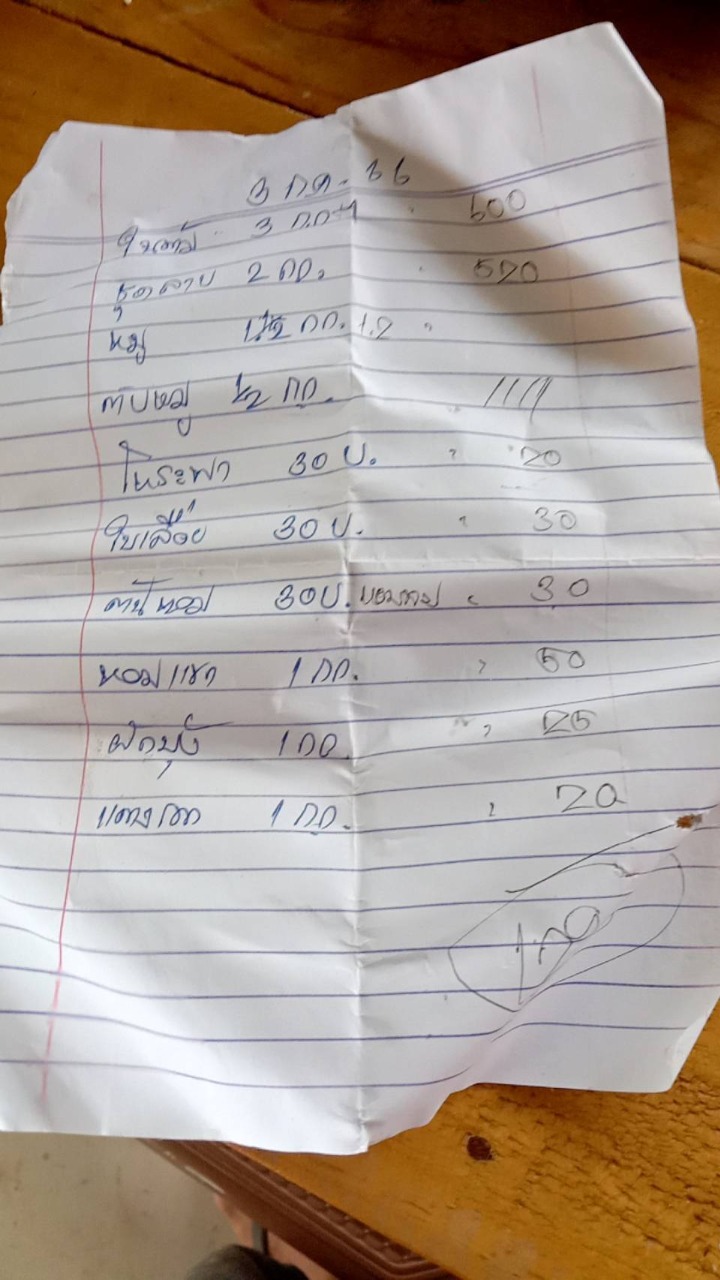 3 กค. 66
3 กก 600
ชุดลาบ 2 กก. 520
หมู 1/2 กก. 1.2
ตับหมู 1/2 กก. ////
โหระพา 30 บ. 20
ใบเลื่อย 30 บ. 30
ต้นหอม 30 บ. 30
หอมแดง 1 กก. 50
ผักบุ้ง 1 กก. 25
แตงกวา 1 กก. 20